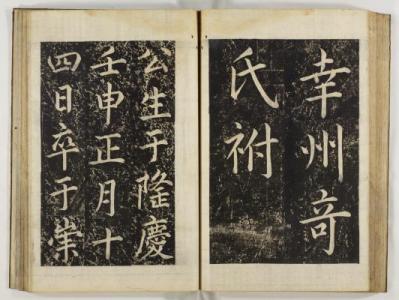 幸州奇
氏祔
公生于隆慶
壬申正月十
四日卒于崇